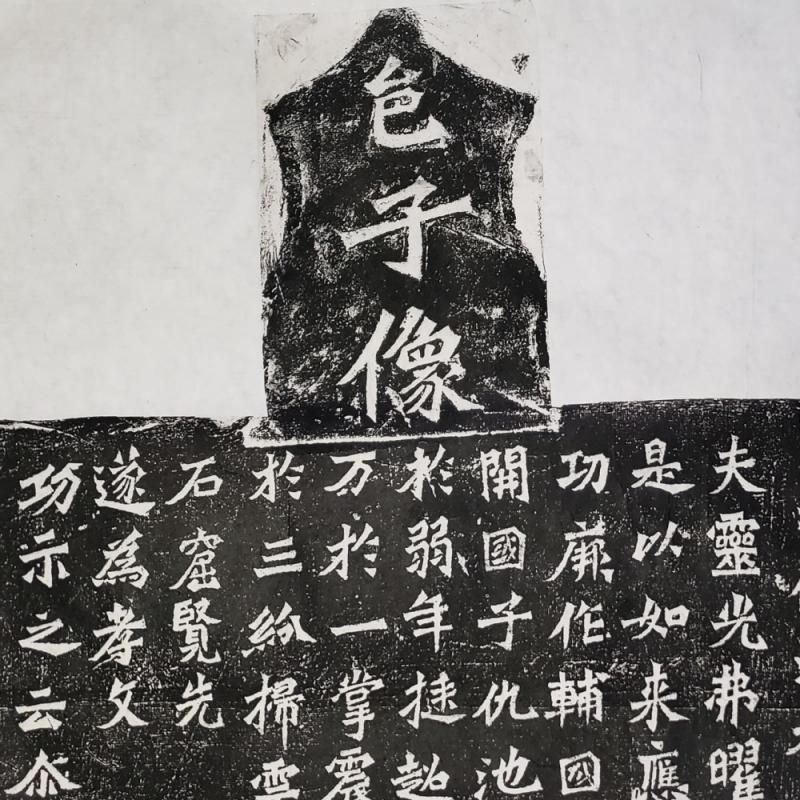 邑子像
夫靈光弗曜
是以如来應
功厥作輔国
開國子仇池
於弱年挺超
万於一掌震
於三紛掃雲
石窟覽先
遂為孝文
功示之云尒